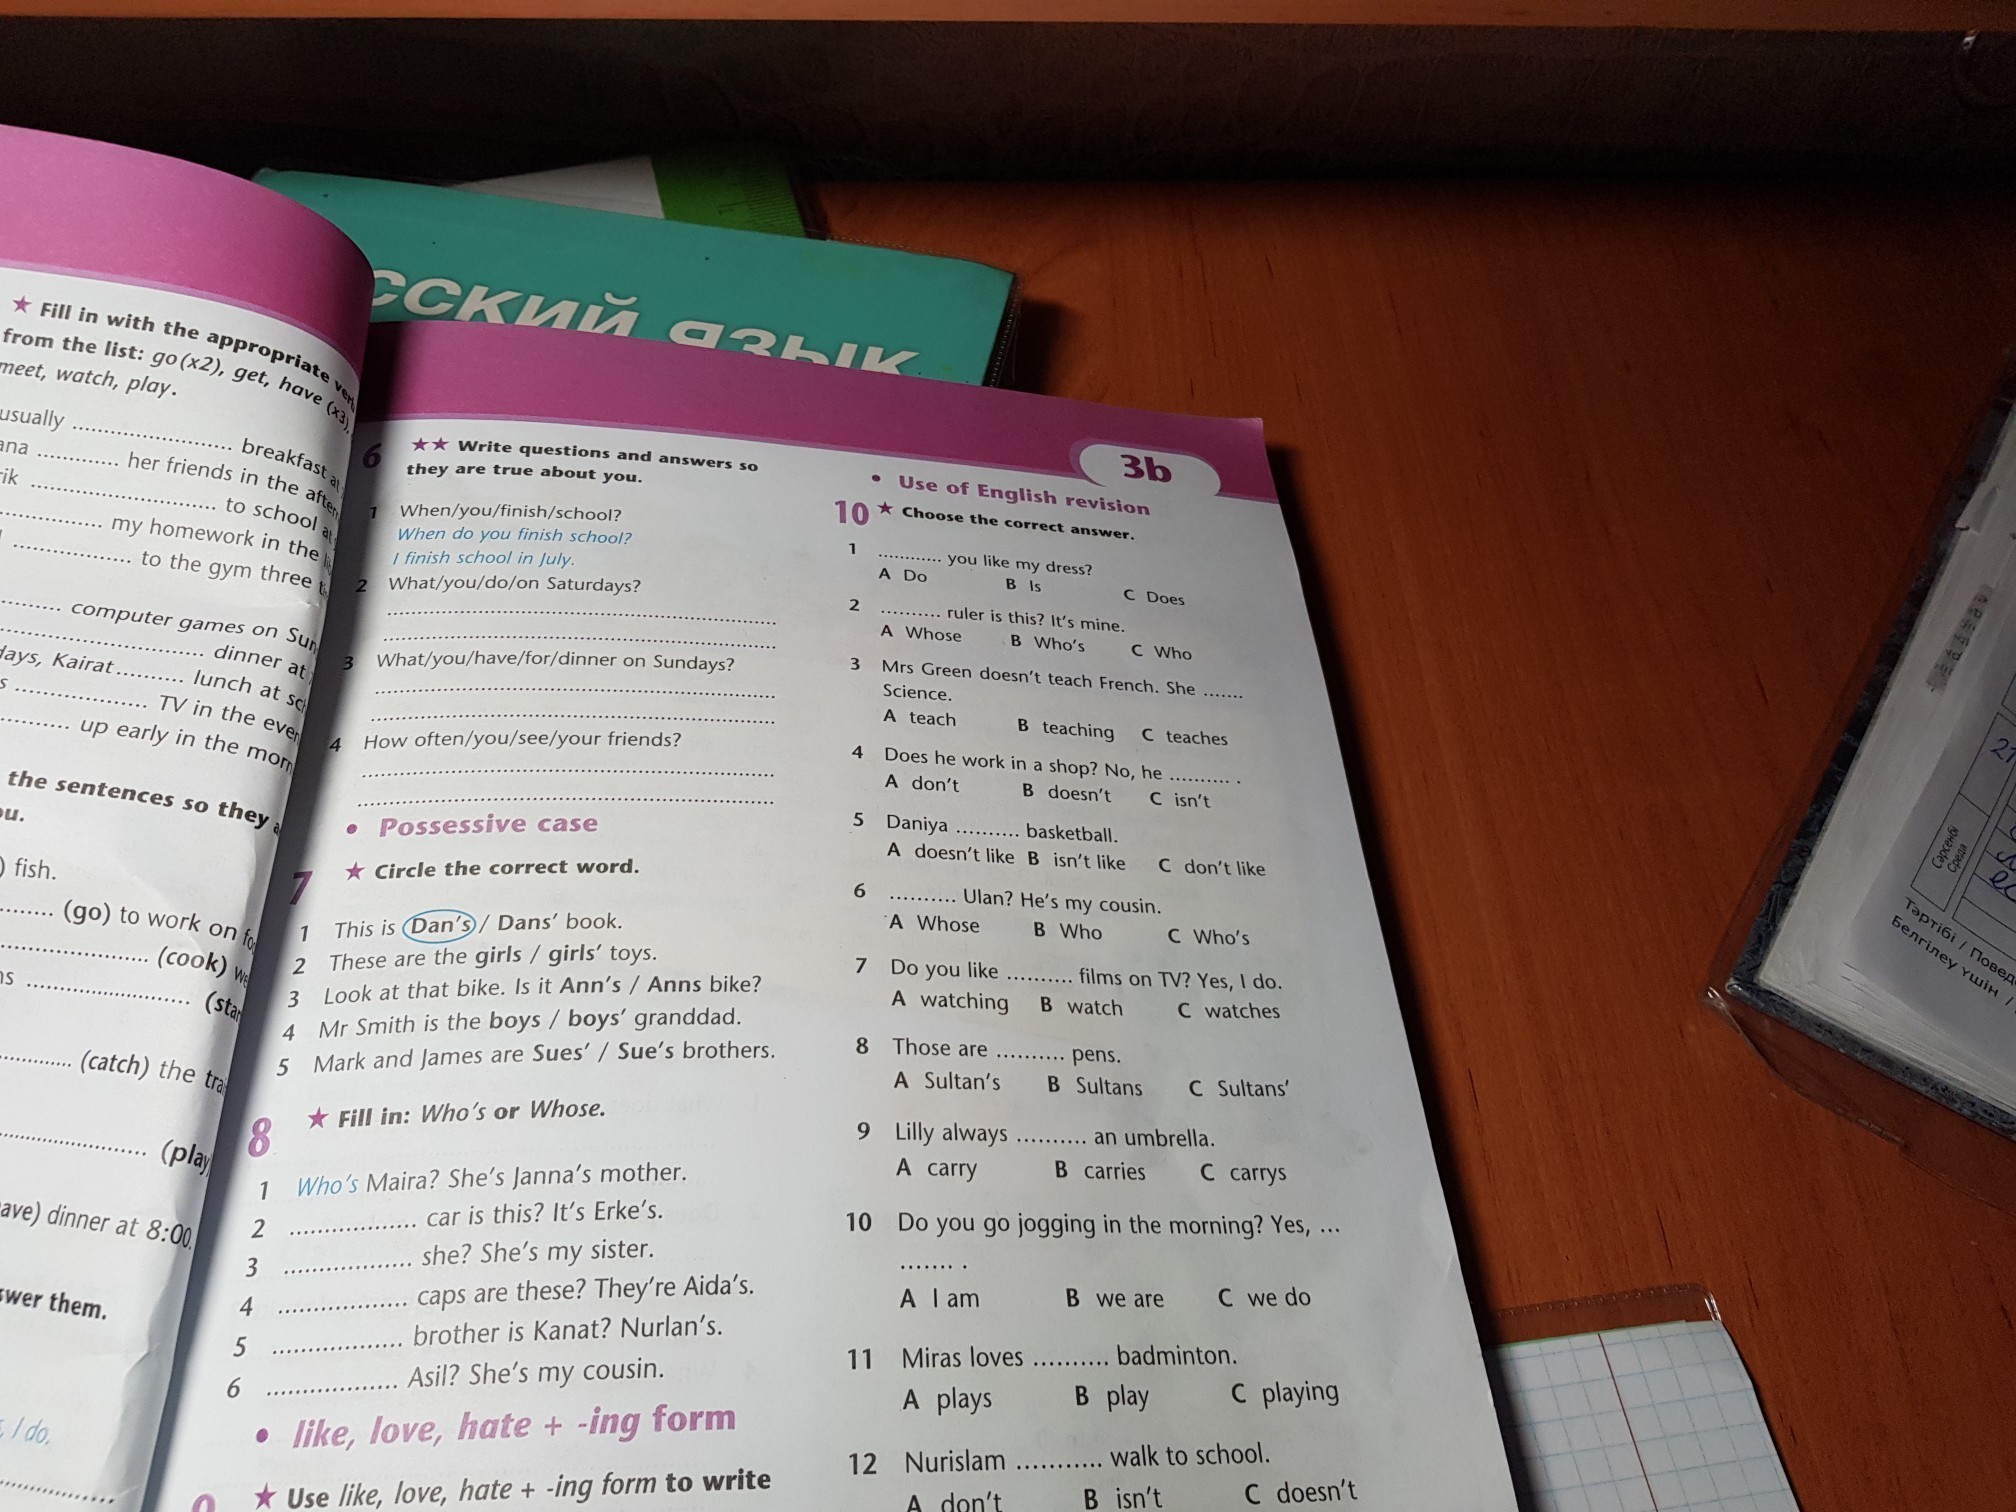 ССКИЙ ЯЗЫК
★ Fill in with the appropriate
from the list: go (x2), get, have (x3),
meet, watch, play.
usually .......... breakfast
.......... her friends in the
.......... to school
.......... my homework in the
.......... to the gym three
.......... computer games on
.......... dinner at
Kairat .......... lunch at
.......... TV in the
.......... up early in the
the sentences so they
) fish.
.......... (go) to work on
.......... (cook)
..........
.......... (catch) the
.......... (play
dinner at 8:00.
them.
I do.
3b
6 ★★ Write questions and answers so
they are true about you.
1 When/you/finish/school?
When do you finish school?
I finish school in July.
2 What/you/do/on Saturdays?
3 What/you/have/for/dinner on Sundays?
4 How often/you/see/your friends?
• Possessive case
7 ★ Circle the correct word.
1 This is Dan's / Dans' book.
2 These are the girls / girls' toys.
3 Look at that bike. Is it Ann's / Anns bike?
4 Mr Smith is the boys / boys' granddad.
5 Mark and James are Sues' / Sue's brothers.
8 ★ Fill in: Who's or Whose.
1 Who's Maira? She's Janna's mother.
2 .......... car is this? It's Erke's.
3 .......... she? She's my sister.
4 .......... caps are these? They're Aida's.
5 .......... brother is Kanat? Nurlan's.
6 .......... Asil? She's my cousin.
• like, love, hate + -ing form
★ Use like, love, hate + -ing form to write
• Use of English revision
10 ★ Choose the correct answer.
1 .......... you like my dress?
A Do B Is C Does
2 .......... ruler is this? It's mine.
A Whose B Who's C Who
3 Mrs Green doesn't teach French. She .......
Science.
A teach B teaching C teaches
4 Does he work in a shop? No, he .......... .
A don't B doesn't C isn't
5 Daniya .......... basketball.
A doesn't like B isn't like C don't like
6 .......... Ulan? He's my cousin.
A Whose B Who C Who's
7 Do you like .......... films on TV? Yes, I do.
A watching B watch C watches
8 Those are .......... pens.
A Sultan's B Sultans C Sultans'
9 Lilly always .......... an umbrella.
A carry B carries C carrys
10 Do you go jogging in the morning? Yes, ...
....... .
A I am B we are C we do
11 Miras loves .......... badminton.
A plays B play C playing
12 Nurislam .......... walk to school.
A don't B isn't C doesn't
Сәрсенбі
Среда
Тәртібі /
Белгілеу үшін /